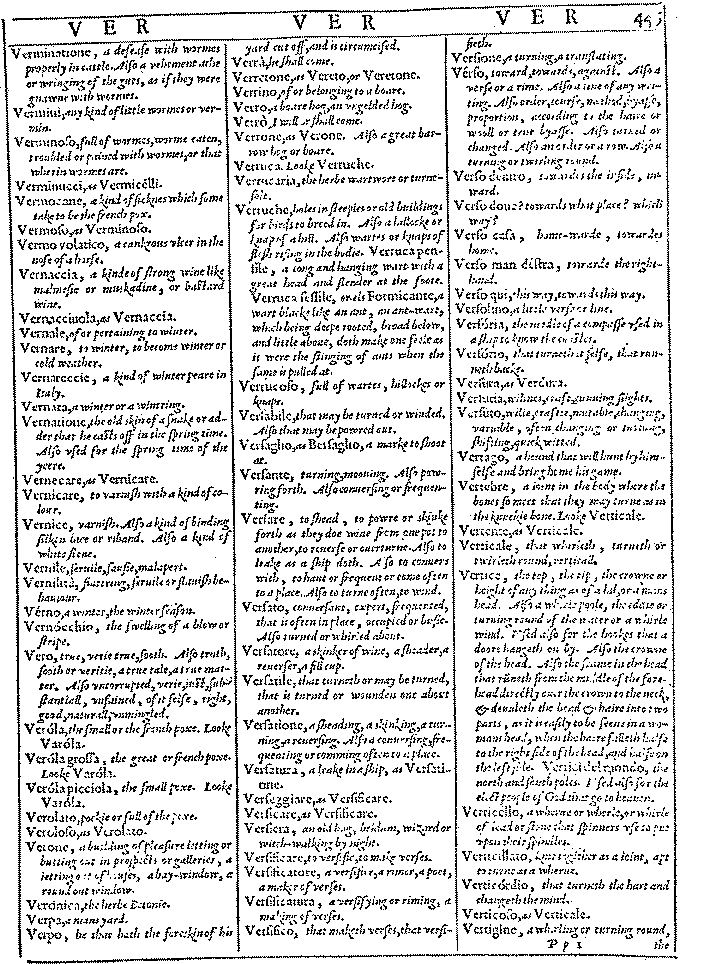 V E R
V E R
V E R
Verminatione, a desease with wormes
properly in cattle. Also a vehement ache
or wringing of the guts, as if they were
gnawne with wormes.
Vermini, any kind of little wormes or ver-
min.
Verminoso, full of wormes, worme eaten,
troubled or pained with wormes, or that
wherin wormes are.
Verminucci, as Vermicelli.
Vermocane, a kind of sicknes which some
take to be the french pox.
Vermoso, as Verminoso.
Vermo volatico, a cankrous vlcer in the
nose of a horse.
Vernaccia, a kinde of strong wine like
malmesie or muskadine, or bastard
wine.
Vernacciuola, as Vernaccia.
Vernale, of or pertaining to winter.
Vernare, to winter, to become winter or
cold weather.
Vernareccie, a kind of winter peare in
Italy.
Vernata, a winter or a wintring.
Vernatione, the old skin of a snake or ad-
der that he casts off in the spring time.
Also vsed for the spring time of the
yeere.
Vernecare, as Vernicare.
Vernicare, to varnish with a kind of co-
lour.
Vernice, varnish. Also a kind of binding
silken lace or riband. Also a kind of
white stone.
Vernile, seruile, saucie, malapert.
Vernilità, flattring, seruile or slauish be-
hauiour.
Vérno, a winter, the winter season.
Vernócchio, the swelling of a blow or
stripe.
Vero, true, verie true, sooth. Also truth,
sooth or veritie, a true tale, a true mat-
ter. Also vncorrupted, verie, iust, sub-
stantiall, vnfained, of it selfe, right,
good, naturall, vnmingled.
Veróla, the small or the french poxe. Looke
Varóla.
Veróla grossa, the great or french poxe.
Looke Varóla.
Veróla picciola, the small poxe. Looke
Varóla.
Verolato, pockie or full of the poxe.
Veroloso, as Verolato.
Verone, a building of pleasure ietting or
butting out in prospects or galleries, a
ietting out of houses, a bay-window, a
round out window.
Verónica, the herbe Betonie.
Verpa, a mans yard.
Verpo, he that hath the foreskin of his
yard cut off, and is circumcised.
Verrà, he shall come.
Verretone, as Vereto, or Veretone.
Verrino, of or belonging to a boare.
Verro, a boare hog, an vngelded hog.
Verrò, I will or shall come.
Verrone, as Verone. Also a great bar-
row hog or boare.
Verruca. Looke Verruche.
Verrucaria, the herbe wartwort or turne-
sole.
Verruche, holes in steeples or old buildings
for birds to breed in. Also a hillocke or
knap of a hill. Also wartes or knaps of
flesh rising in the bodie. Verruca pen-
sile, a long and hanging wart with a
great head and slender at the foote.
Verruca sessile, or els Formicante, a
wart blacke like an ant, an ant-wart,
which being deepe rooted, broad below,
and little aboue, doth make one feele as
it were the stinging of ants when the
same is pulled at.
Verrucoso, full of wartes, hillockes or
knaps.
Versabile, that may be turned or winded.
Also that may be powred out.
Versaglio, as Bersaglio, a marke to shoot
at.
Versante, turning, moouing. Also pow-
ring forth. Also conuersing or frequen-
ting.
Versare, to shead, to powre or skinke
forth as they doe wine from one pot to
another, to reuerse or ouerturne. Also to
leake as a ship doth. Also to conuers
with, to hant or frequent or come often
to a place. Also to turne often, to wind.
Versato, conuersant, expert, frequented,
that is often in place, occupied or busie.
Also turned or whirled about.
Versatore, a skinker of wine, a sheader, a
reuerser, a fill cup.
Versatile, that turneth or may be turned,
that is turned or wounden one about
another.
Versatione, a sheading, a skinking, a tur-
ning, a reuersing. Also a conuersing, fre-
quenting or comming often to a place.
Versatura, a leake in a ship, as Versati-
one.
Verseggiare, as Versificare.
Versicare, as Versificare.
Versiera, an old hag, beldam, wizard or
witch-walking by night.
Versificare, to versifie, to make verses.
Versificatore, a versifier, a rimer, a poet,
a maker of verses.
Versificatura, a versifying or riming, a
making of verses.
Versifico, that maketh verses, that versi-
fieth.
Versione, a turning, a translating.
Vérso, toward, towards, against. Also a
verse or a rime. Also a line of any wri-
ting. Also order, course, method, byasse,
proportion, according to the haire or
wooll or true byasse. Also turned or
changed. Also an order or a row. Also a
turning or twirling round.
Verso dentro, towards the inside, in-
ward.
Verso doue? towards what place? which
way?
Verso casa, home-warde, towardes
home.
Verso man destra, towarde the right-
hand.
Verso qui, this way, towards this way.
Versolino, a little verse or line.
Versória, the needle of a compasse vsed in
a ship to know the coastes.
Versóno, that turneth it selfe, that run-
neth backe.
Versura, as Verdura.
Versutia, wilines, craft, cunning sleights.
Versuto, wilie, craftie, mutable, changing,
variable, often changing or turning,
shifting, quick witted.
Vertago, a hound that will hunt by him-
selfe and bring home his game.
Vertebre, a ioint in the body where the
bones so meet that they may turne as in
the huckle bone. Looke Verticale.
Vertente, as Verticale.
Verticale, that whirleth, turneth or
twirleth round, vertical.
Vertice, the top, the tip, the crowne or
height of any thing as of a hil, or a mans
head. Also a whirle poole, the edate or
turning round of the water or a whirle
wind. Vsed also for the hookes that a
doore hangeth on by. Also the crowne
of the head. Also the seame in the head
that runneth from the middle of the fore-
head directly ouer the crown to the neck,
& deuideth the head & haire into two
parts, as it is easily to be seene in a wo-
mans head, when the haire falleth halfe
to the right side of the head, and halfe on
the left side. Vertici del mondo, the
north and south poles. Vsed also for the
elect people of God that go to heauen.
Verticello, a wherue or whirle, or whirle
of lead or stone that spinners vse to put
vpon their spindles.
Verticillato, knit togither as a ioint, apt
to turne as a wherue.
Verticórdio, that turneth the hart and
changeth the mind.
Verticoso, as Verticale.
Vertigine, a whirling or turning round,
P p 1
the